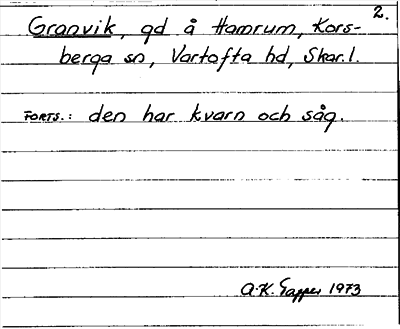 2.
Granvik, gd å Hamrum, Kors-
berga sn, Vartofta hd, Skar.l.
FORTS.: den har kvarn och såg.
A.K. Tapper 1973